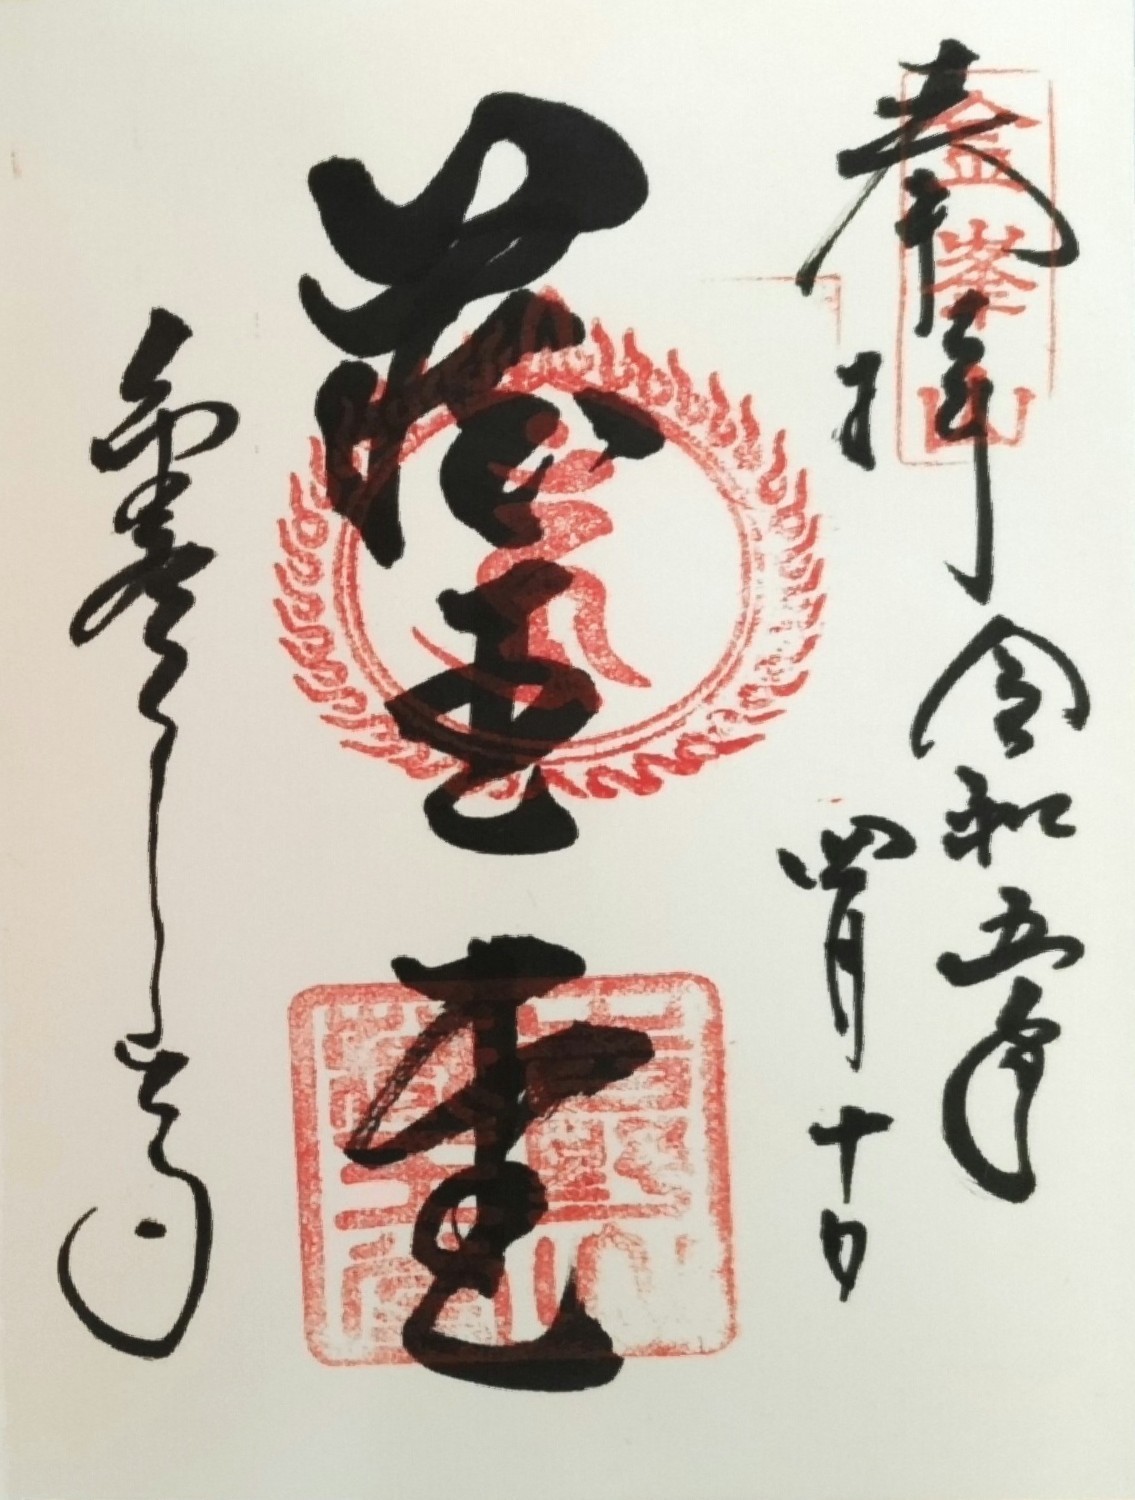 奉拝
金峯山
令和五年
四月十日
蔵王堂
金峯山寺